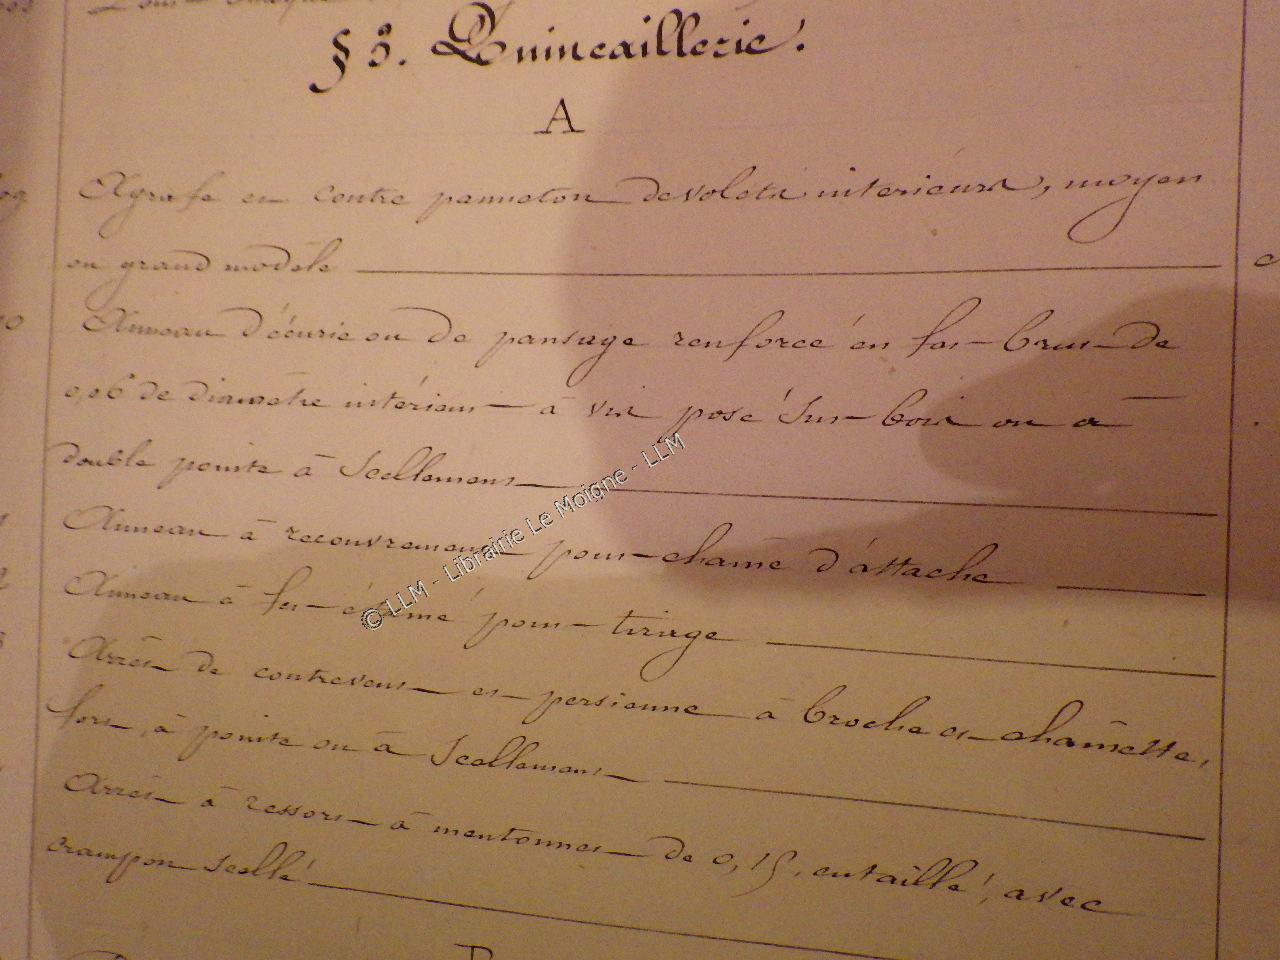 § 3. Quincaillerie.
A
Agrafe en contre panneton de volets intérieurs, moyen
ou grand modèle
Anneau d'écurie ou de pansage renforcé en fer brut de
0,06 de diamètre intérieur à vis posé sur bois ou à
double pointe à scellement
Anneau à recouvrement pour chaîne d'attache
Anneau à fer étamé pour tirage
Arrêt de contrevent et persienne à broche et chaînette,
fort, à pointe ou à scellement
Arrêt à ressort à mentonnet de 0,15, entaillé, avec
crampon scellé
© LLM - Librairie Le Moigne - LLM